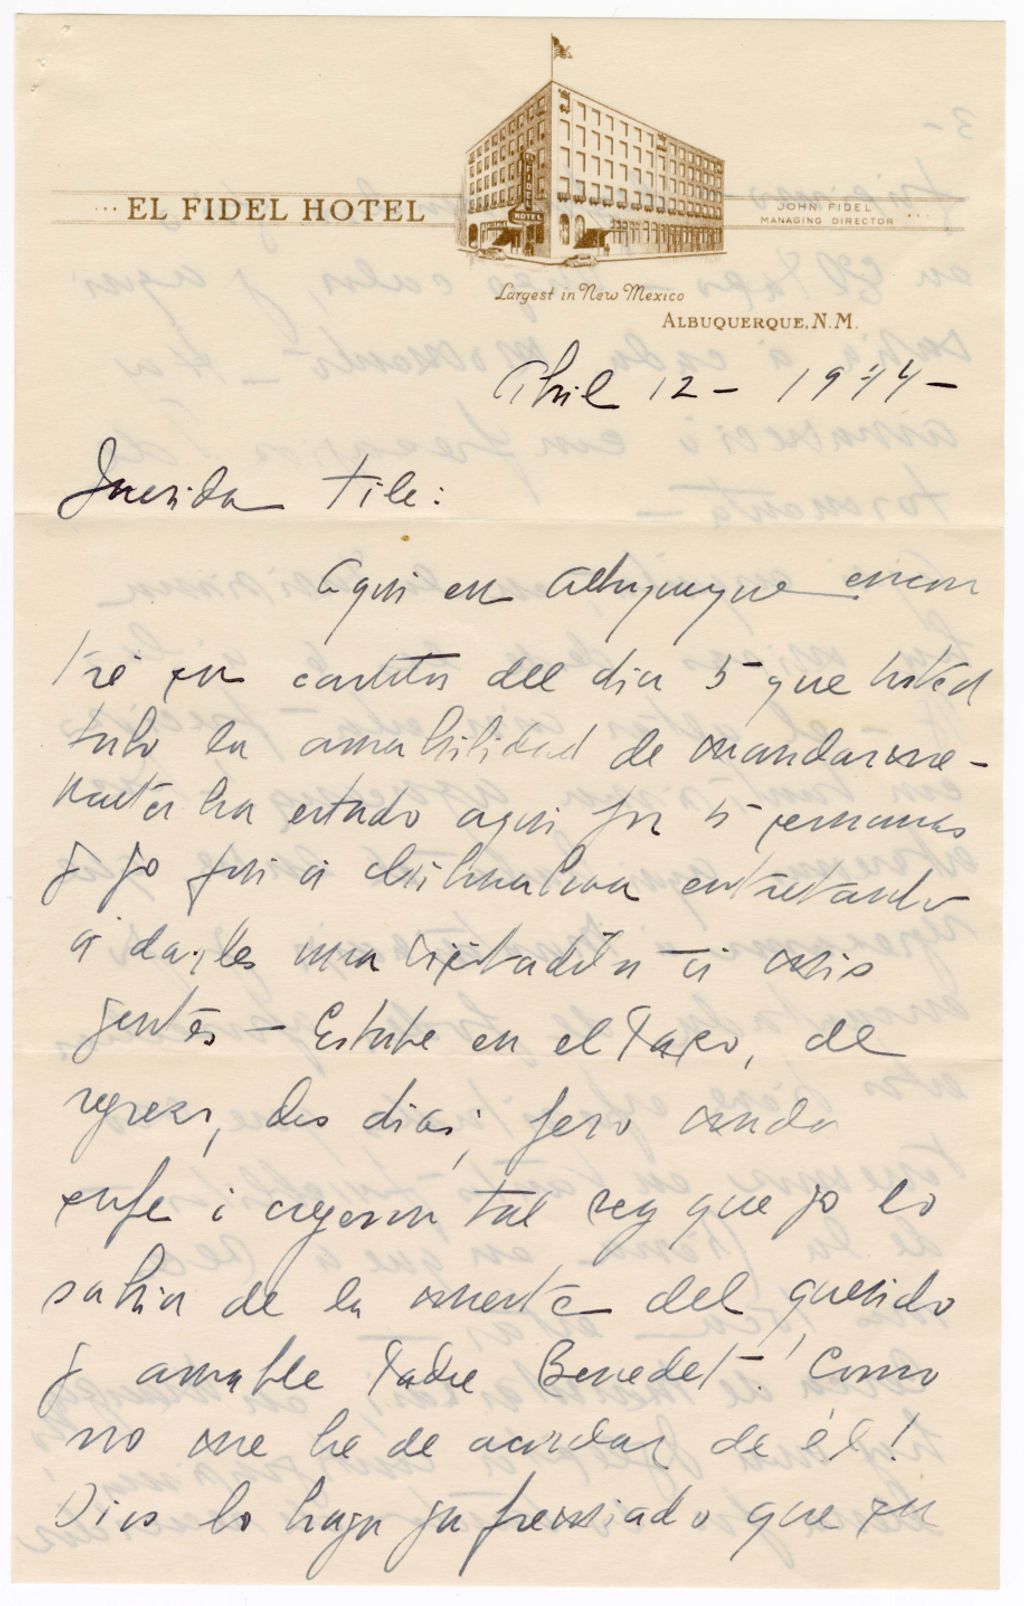 EL FIDEL HOTEL
FIDEL
HOTEL
JOHN FIDEL
MANAGING DIRECTOR
Largest in New Mexico
ALBUQUERQUE, N.M.
Abril 12 - 1944 -
Querida Tile:
Aqui en Albuquerque encon
tré su cartita del dia 5 que usted
tubo la amabilidad de mandarme -
ha estado aqui por 5 semanas
y yo fui a Chihuahua entretanto
á darles una á mis
gentes - Estube en el Paso, de
regreso, dos dias; pero nada
supe i creyeron tal vez que yo lo
sabia de la muerte del querido
y amable Padre Benedet. ! Como
no me he de acordar de él!
Dios lo haya ya premiado que su